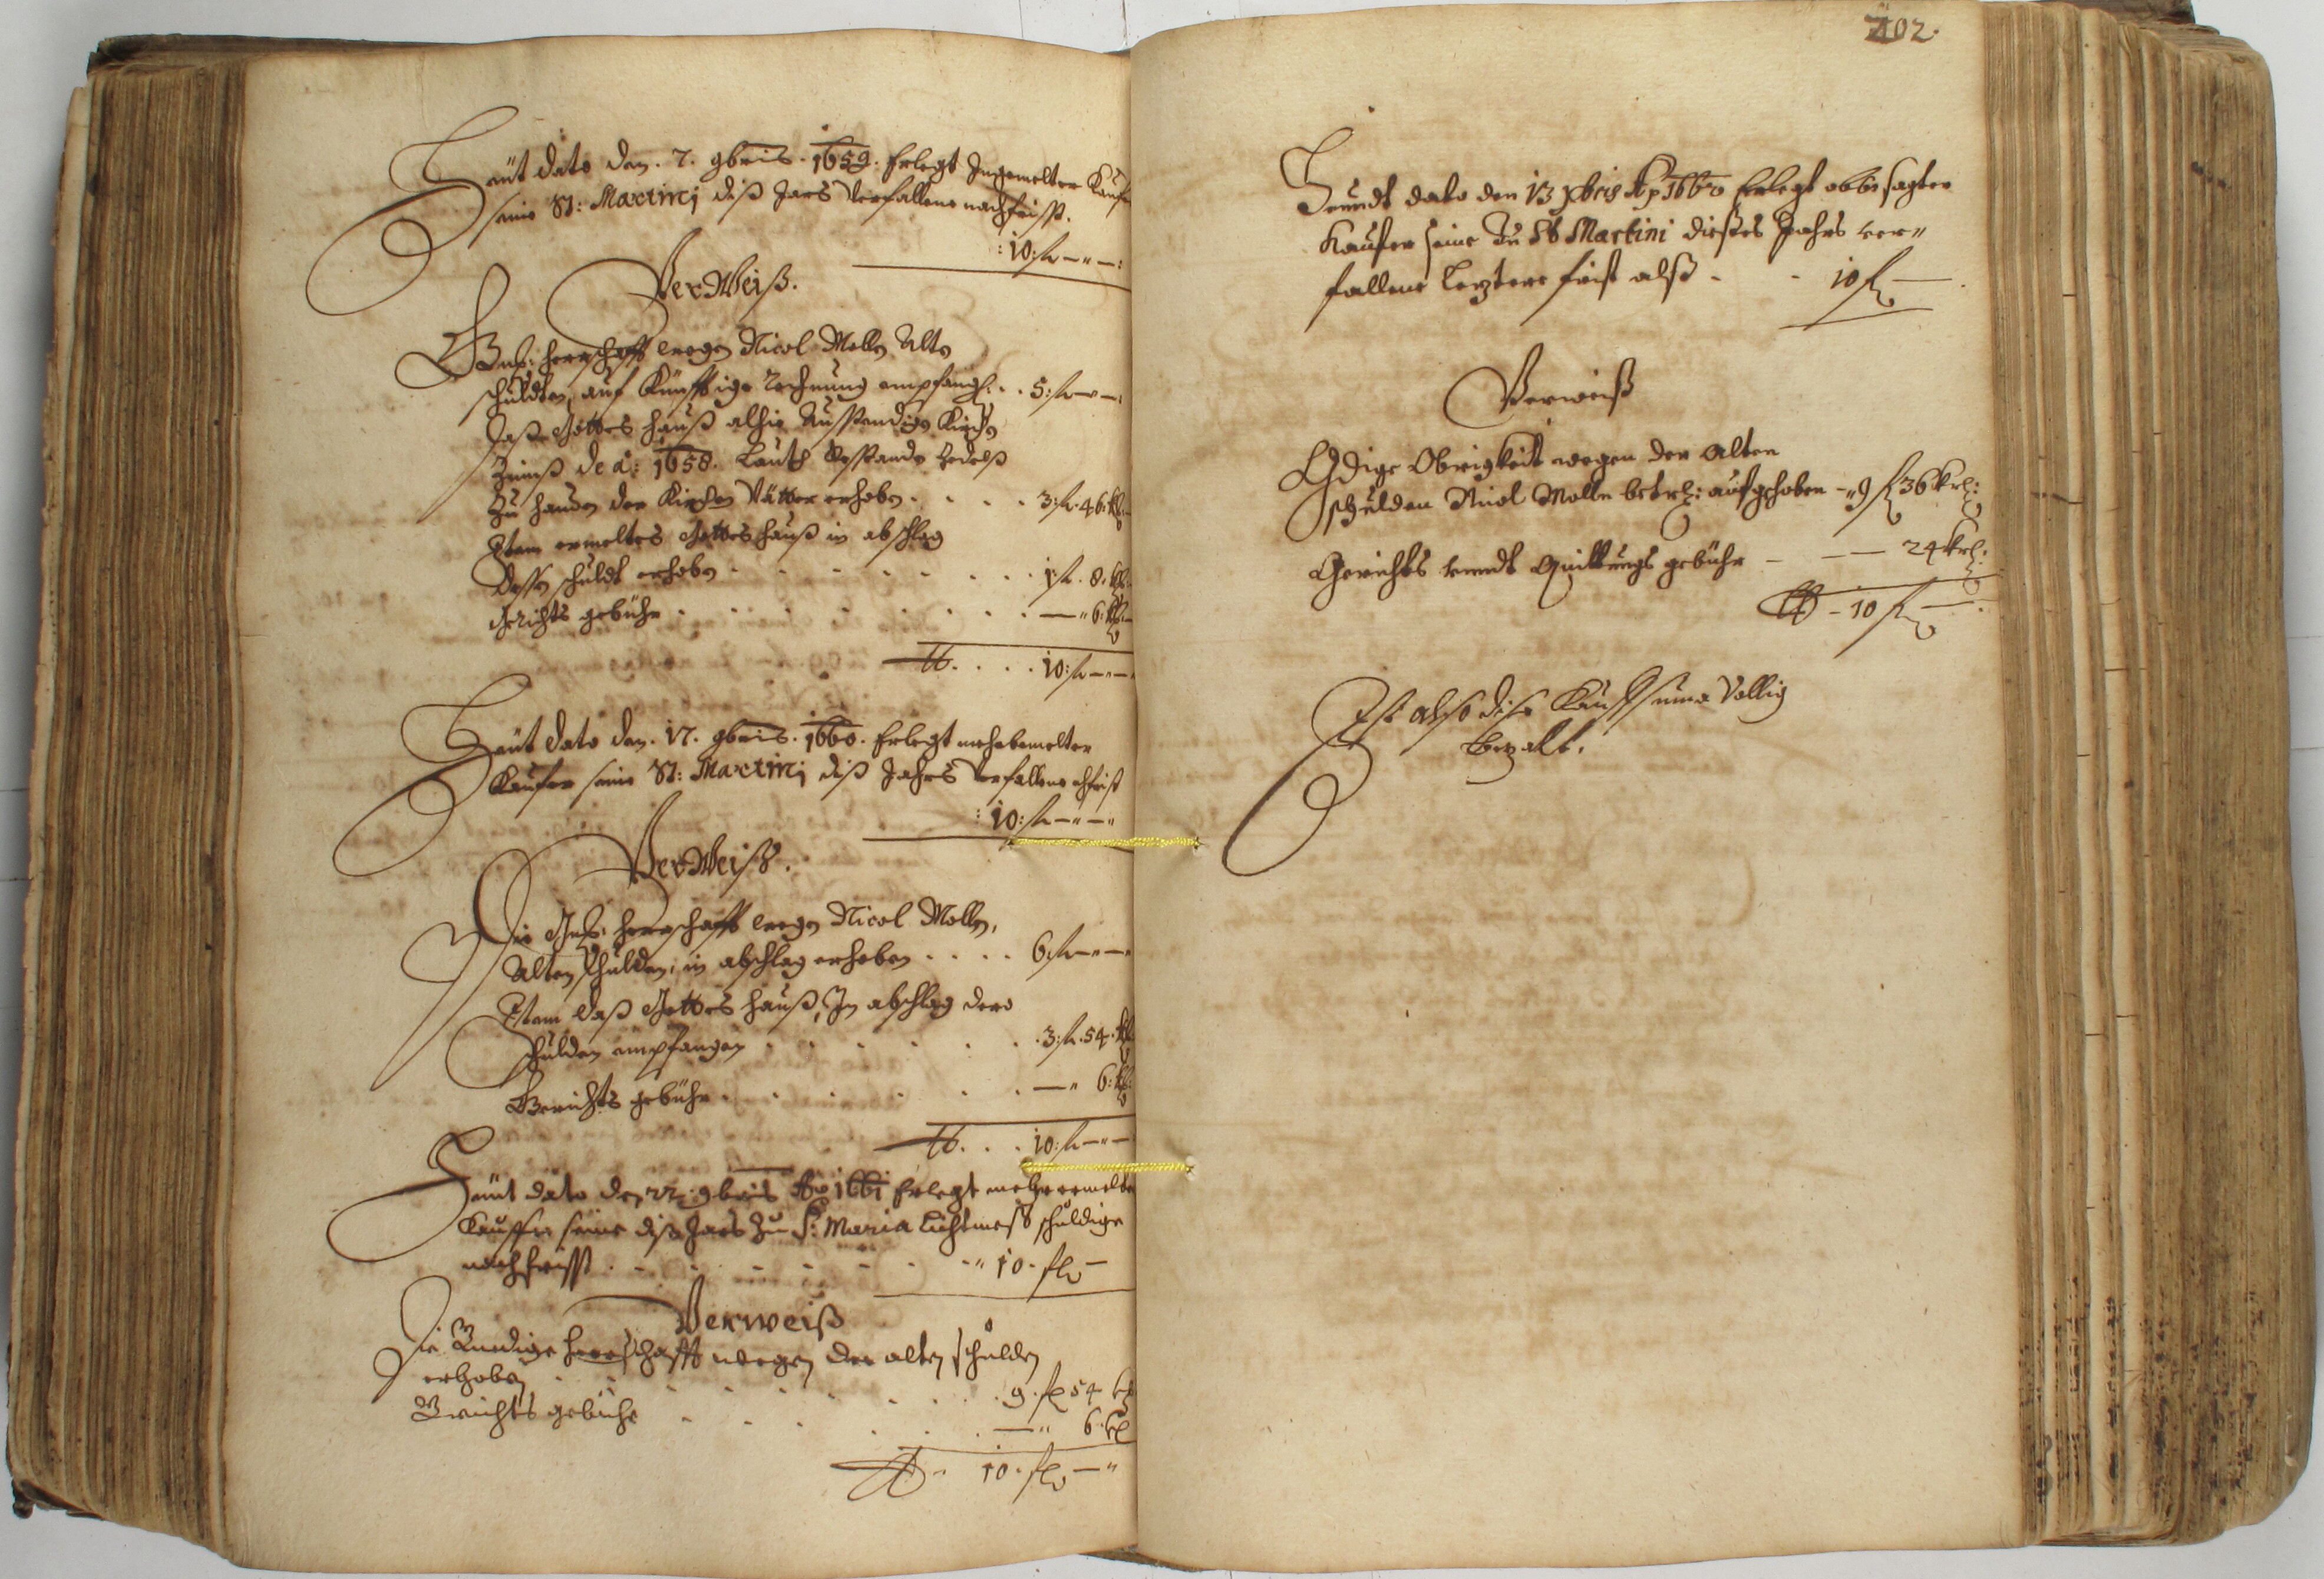 Heüt dato den. 7. 9bris. 1659. Erlegt Ingemelter Kauf
seine St: Martinj diß Jars Verfallene nachfrisst.
:10: fl — " — :
VerWeiß.
Gnd: herrschafft wegen Nicol Molln Alte
schuldten, auf Künfftige rechnung empfang: . . 5: fl — " — :
Daß Gottes hauß alhie Ausstendige Kirchen
Zinß de a: 1658. Lauth Zedels
Zu handen der Kirchen Vätter erhoben . . . . 3: fl. 46: kr
Item ermeltes Gottes hauß in abschlag
dessen schuldt erhoben . . . . . . . 1 fl. 8. kr
Gerichts gebühr . . . . . . . — " 6: kr
. . . 10: fl — " —
Heüt dato den. 17. 9bris. 1660. Erlegt mehrbemelter
Kaufer seine St: Martinj diß Jahrs Verfallene frist
: 10: fl — " — "
VerWeiß.
Die Gnd: herrschafft wegen Nicol Molln,
Alten schulden, in abschlag erhoben . . . . 6: fl — " — "
Item Daß Gottes hauß, In abschlag dero
schulden empfangen . . . . . . 3: fl. 54. kr
Gerichts gebühr . . . . . . — " 6: kr
. . . 10: fl — " —
Heüt dato den 22: 9bris Ao 1661 Erlegt mehr ermelte
Kauffer seine diß Jars Zu S: Maria Lichtmeß schuldige
nachfrisst . . . . . . " 10 - fl —
Verweiß
Die Gnedige herrschafft wegen der alten schulden
erhoben . . . . . . . 9. fl 54 kr
Gerichts gebühr . . . . . — " 6 kr
- 10 - fl — "
402.
Heundt dato den 13 Xbris Ao 1662 Erlegt obbesagter
Kaufer seine Zu St Martini dießes Jahrs ver"
fallene letztere frist alß - - 10 fl —
Verweiß
Gdige Obrigkeit wegen der alten
schulden Nicol Molln betrl: aufgehoben - " 9 fl 36 krl:
Gerichts undt Quittungs gebühr — — — 24 krl:
- 10 fl — .
Ist also dise Kauffsuma Vollig
bezalt.